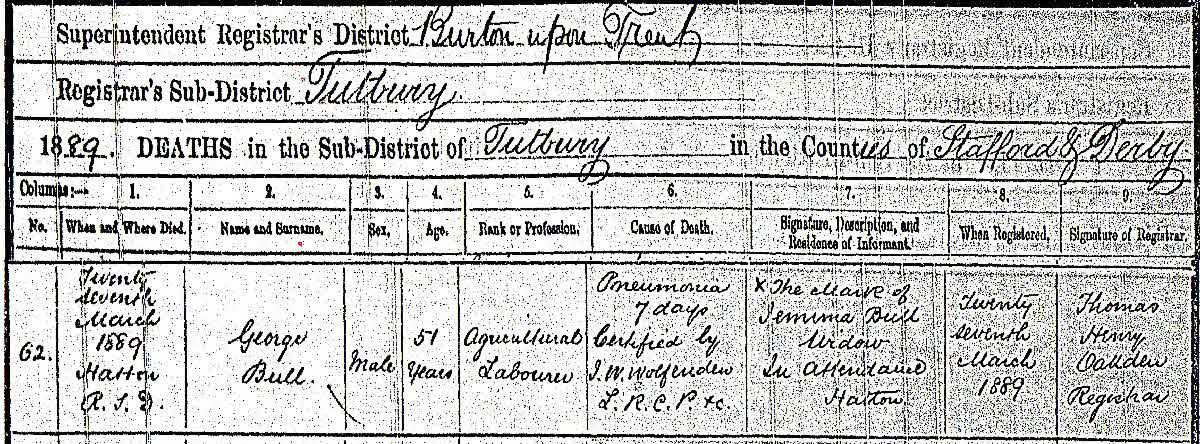 Superintendent Registrar's District Burton upon Trent
Registrar's Sub-District Tutbury
1889. DEATHS in the Sub-District of Tutbury in the Counties of Stafford & Derby
Columns:— 1. 2. 3. 4. 5. 6. 7. 8. 9.
No. When and Where Died. Name and Surname. Sex. Age. Rank or Profession. Cause of Death. Signature, Description, and Residence of Informant. When Registered. Signature of Registrar.
62.
Twenty
seventh
March
1889
Hatton
R. S. D.
George
Bull.
Male
51
Years
Agricultural
Labourer
Pneumonia
7 days
Certified by
J. W. Wolfenden
L. R. C. P. &c.
X The Mark of
Jemima Bull
Widow
In attendance
Hatton
Twenty
seventh
March
1889
Thomas
Henry
Oakden
Registrar